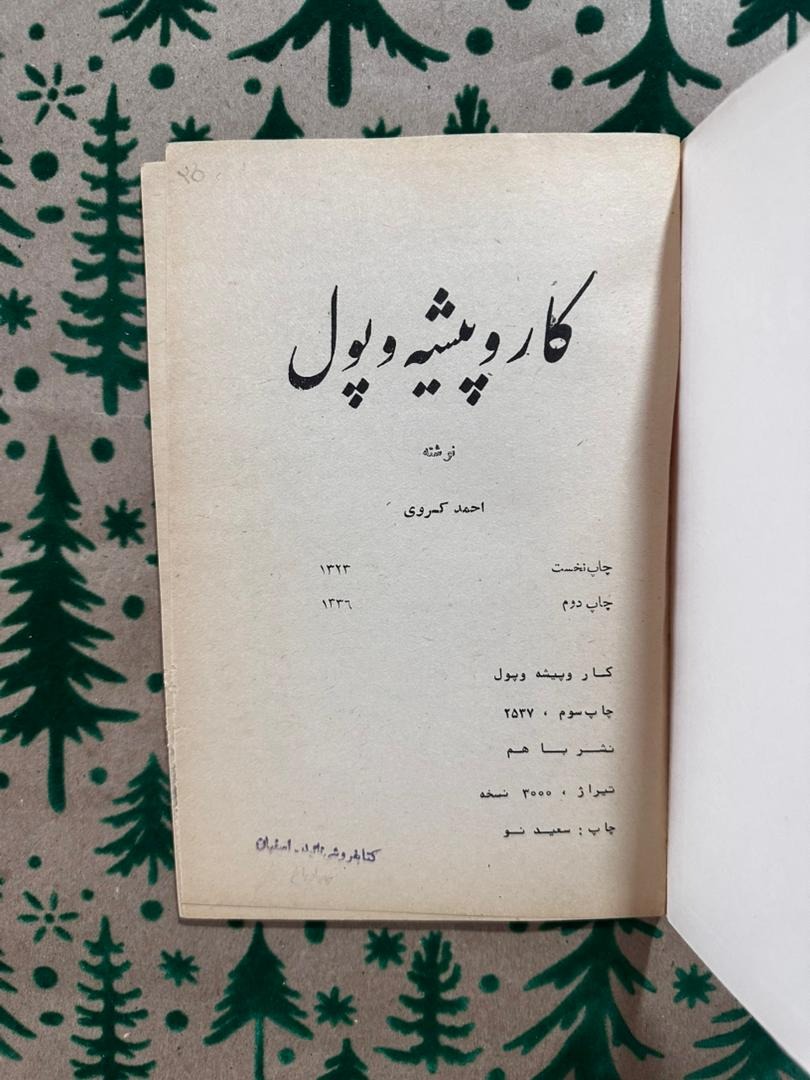 ۲۵
کار و پیشه و پول
نوشته
احمد کسروی
چاپ نخست ۱۳۲۳
چاپ دوم ۱۳۳۶
کار وپیشه وپول
چاپ سوم ، ۲۵۳۷
نشر با هم
تیراژ ، ۳۰۰۰ نسخه
چاپ : سعید نو
کتابفروشی تائید - اصفهان